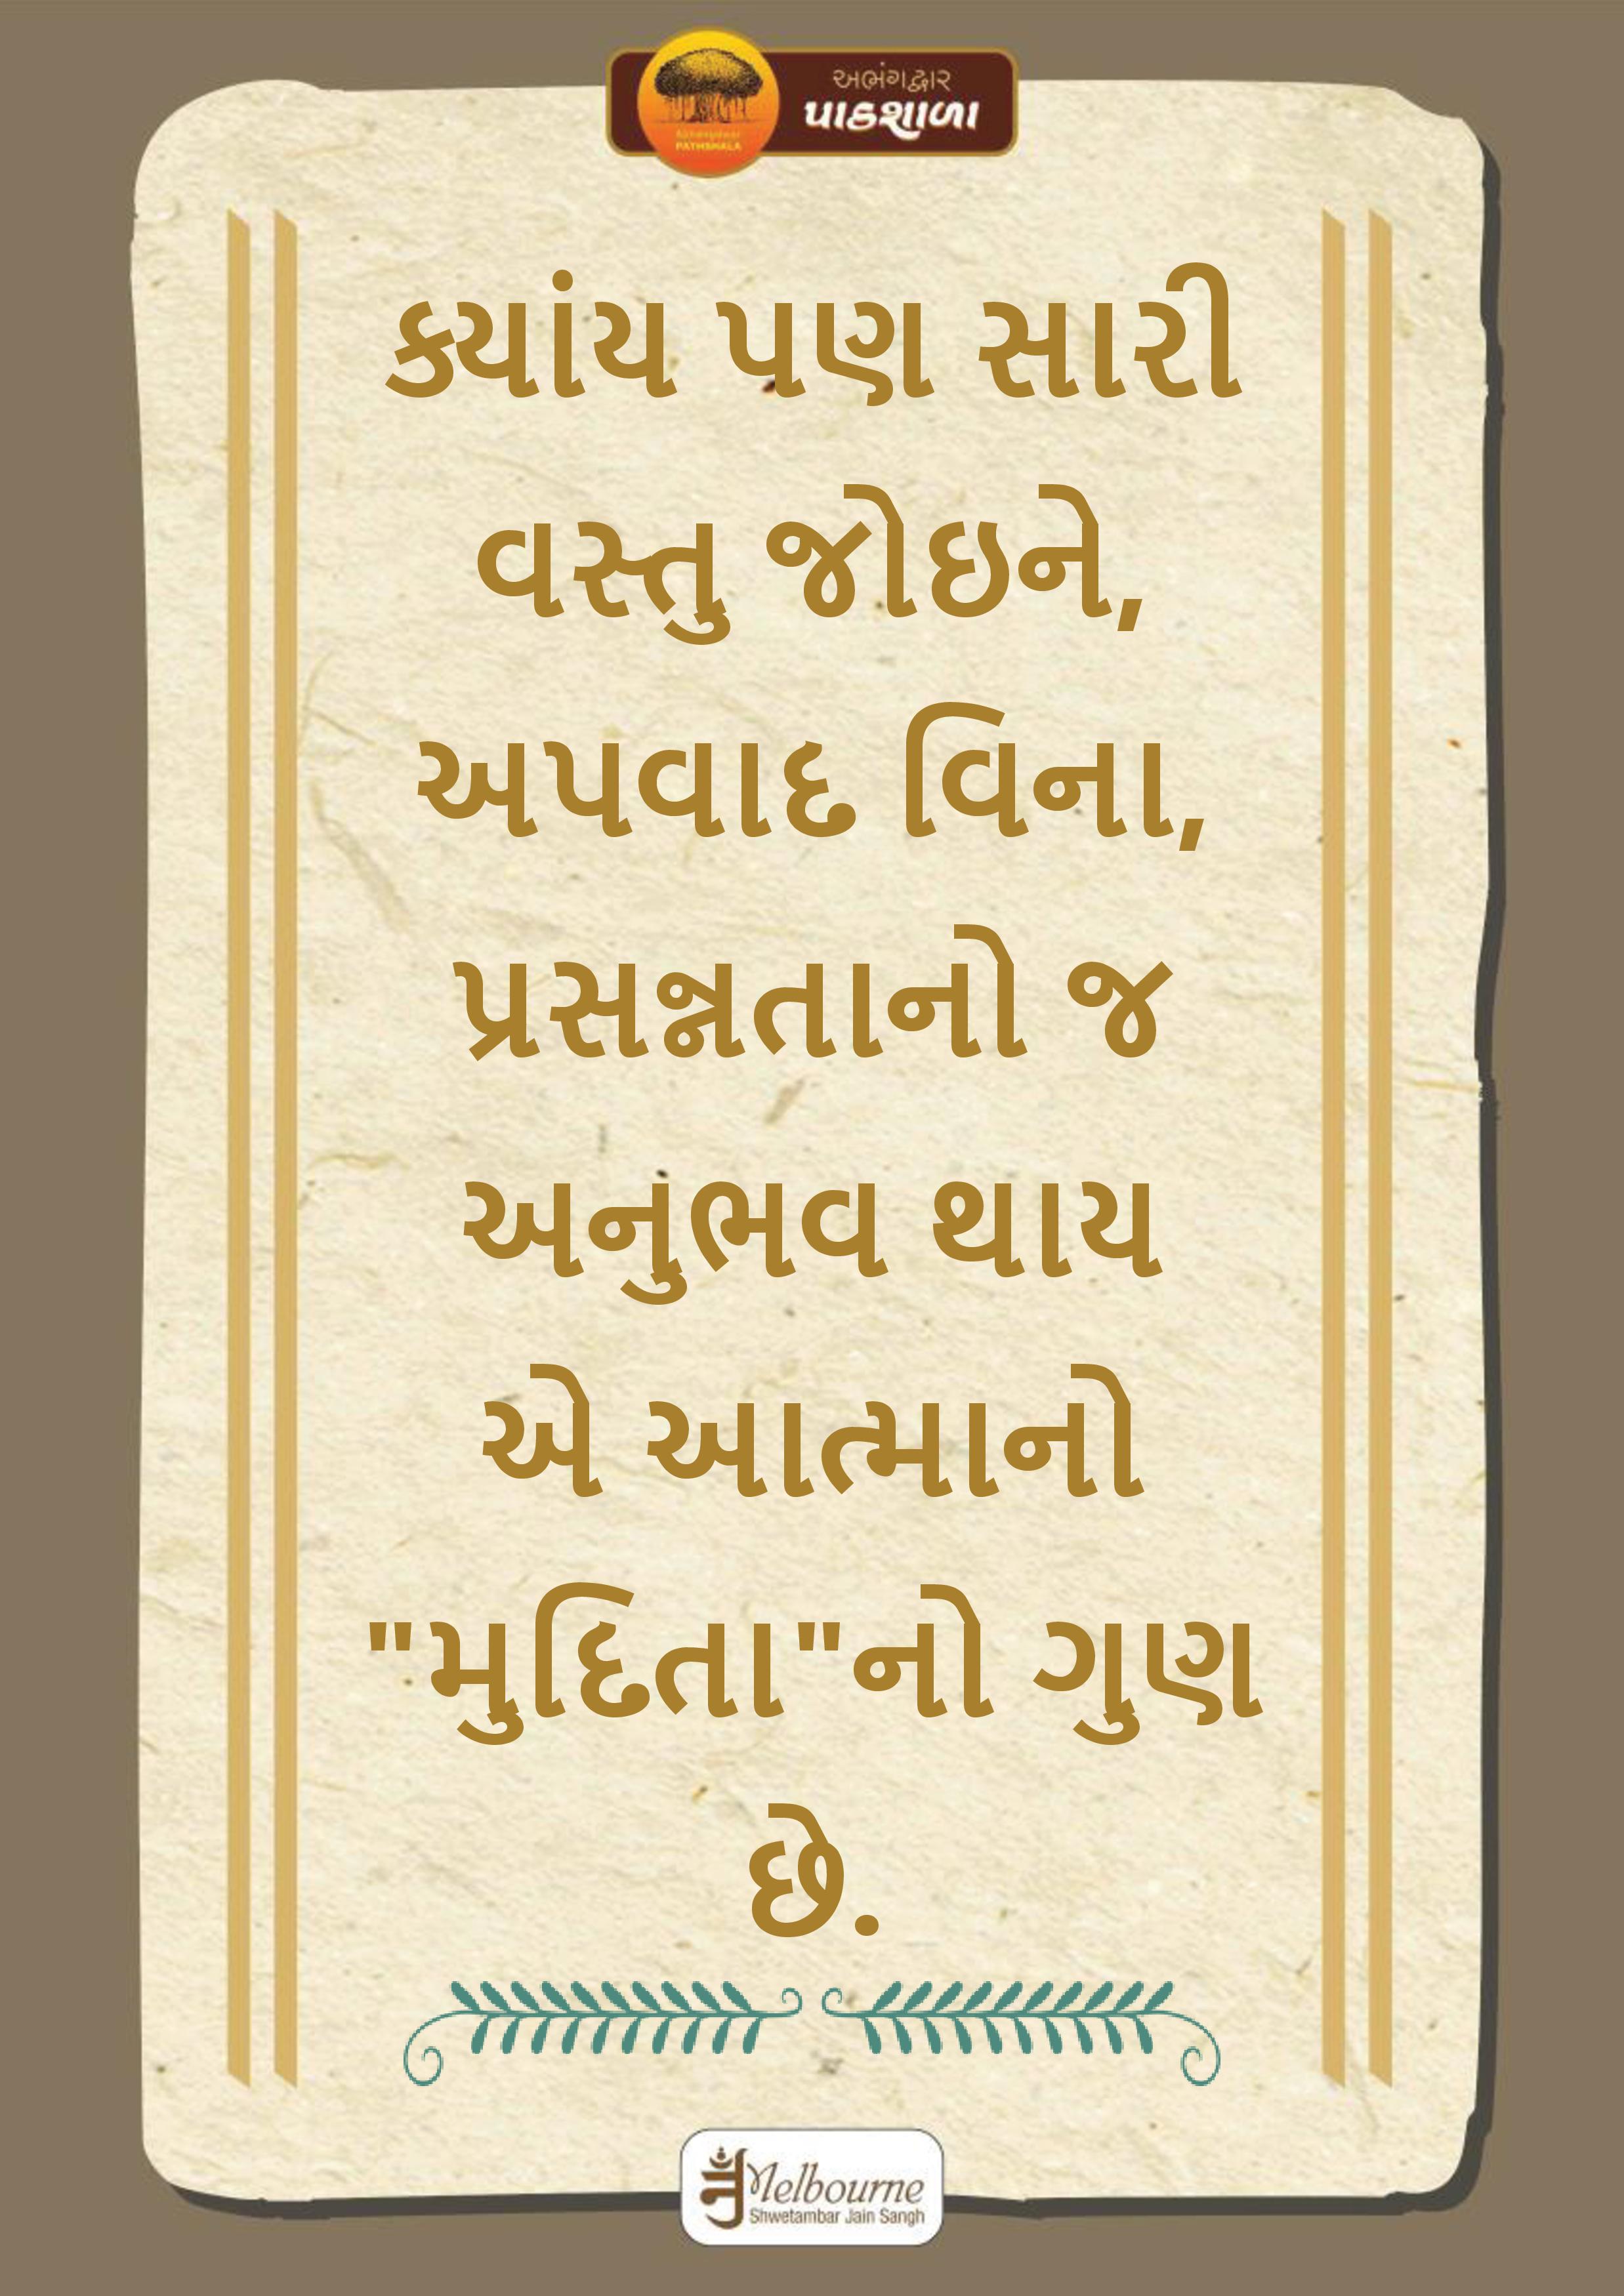 અભંગદ્વાર
પાઠશાળા
Abhangdwar
PATHSHALA
ક્યાંય પણ સારી
વસ્તુ જોઇને,
અપવાદ વિના,
પ્રસન્નતાનો જ
અનુભવ થાય
એ આત્માનો
"મુદિતા"નો ગુણ
છે.
Melbourne
Shwetambar Jain Sangh